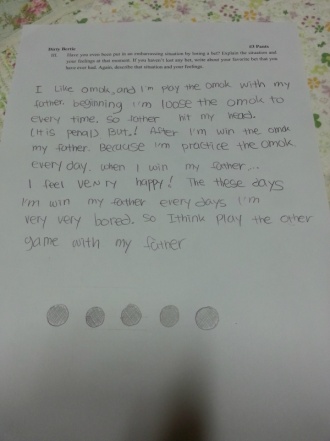 Daily Berrie #3 Points
have you ever been put in an embarrassing situation by losing a bet? Explain the situation and
your feelings at that moment. If you haven't lost any bet, write about your favorite bet that you
have ever had. Again, describe that situation and your feelings.
I like omok, and I'm play the omok with my
father. beginning I'm loose the omok to
every time. so father hit my head.
(it is penal) But! After I'm win the omok
my father. Because I'm practice the omok
every day. when I win my father...
I feel venry happy! The these days
I'm win my father every days I'm
very very bored. so I think play the other
game with my father